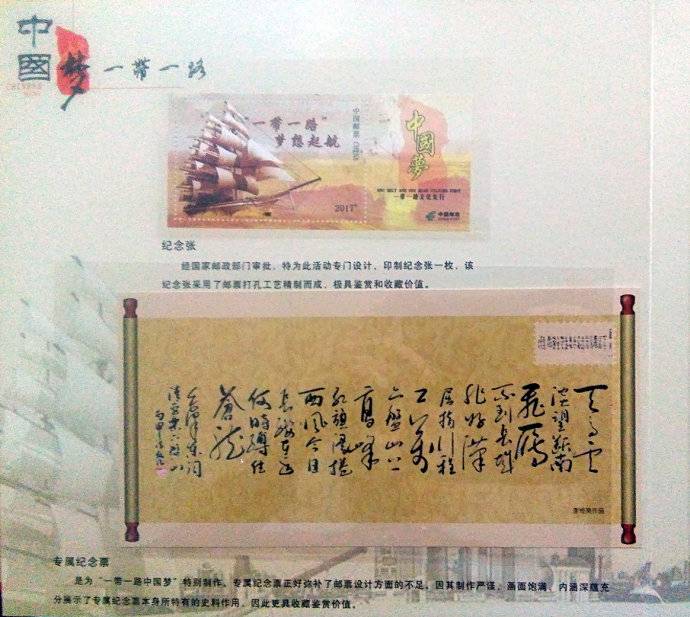 中國
梦
一带一路
"一带一路"
梦想起航
中国邮票 CHINA
中國夢
一带一路文化先行
2017
中国邮政
纪念张
经国家邮政部门审批，特为此活动专门设计、印制纪念张一枚，该
纪念张采用了邮票打孔工艺精制而成，极具鉴赏和收藏价值。
天高云
淡望断南
飞雁
不到长城
非好汉
屈指行程
二万
六盘山上
高峰
红旗漫卷
西风今日
长缨在手
何时缚住
苍龙
毛泽东词
清平乐六盘山
专属纪念票
是为"一带一路中国梦"特别制作。专属纪念票正好弥补了邮票设计方面的不足。因其制作严谨，画面饱满，内涵深蕴充
分展示了专属纪念票本身所特有的史料作用，因此更具收藏鉴赏价值。